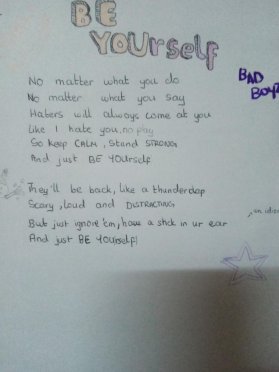 BE
YOUrself
BAD
No matter what you do
No matter what you say
Haters will always come at you
Like I hate you, no play
So keep CALM, stand STRONG
And just BE YOUrself
They'll be back, like a thunderclap
Scary, loud and DISTRACTING
But just ignore 'em, have a stick in ur ear
And just BE YOUrself!